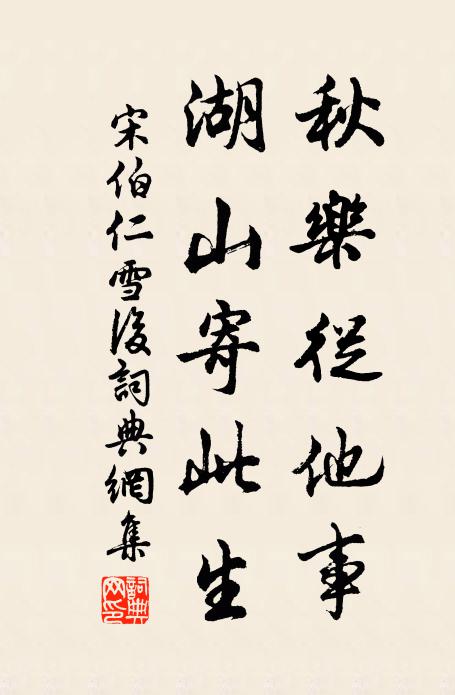 秋樂從他事
湖山寄此生
宋伯仁雪後詞典網集
詞典
网印